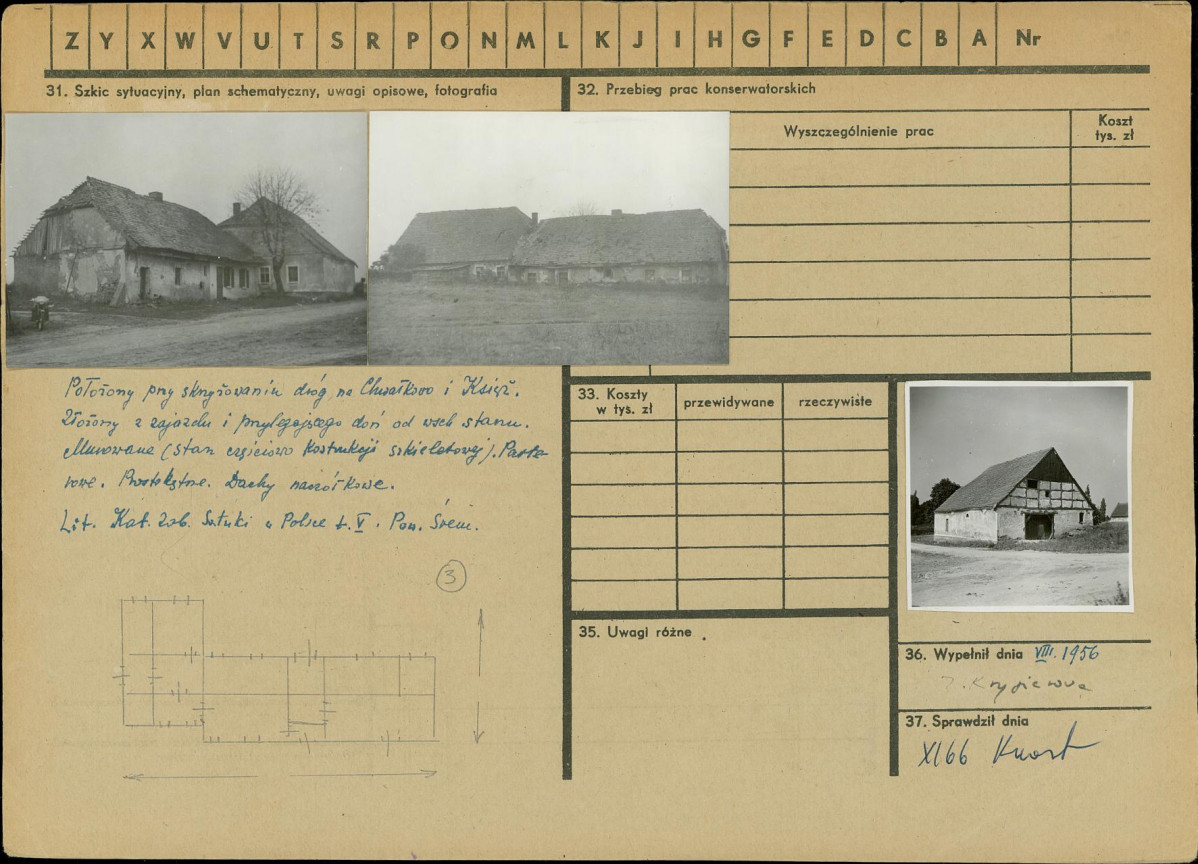 Z Y X W V U T S R P O N M L K J I H G F E D C B A Nr
31. Szkic sytuacyjny, plan schematyczny, uwagi opisowe, fotografia
32. Przebieg prac konserwatorskich
Wyszczególnienie prac
Koszt
tys. zł
Położony przy skrzyżowaniu dróg na Chwałkowo i Książ.
Złożony z zajazdu i przylegającego doń od wsch stanu.
Murowane (stan częściowo kostrukcji szkieletowej). Parte
rowe. Prostokątne. Dachy naczółkowe.
Lit. Kat. Zab. Sztuki w Polsce t. V. Pow. Śrem.
3
33. Koszty
w tys. zł
przewidywane
rzeczywiste
35. Uwagi różne
36. Wypełnił dnia VIII. 1956
37. Sprawdził dnia
XI 66